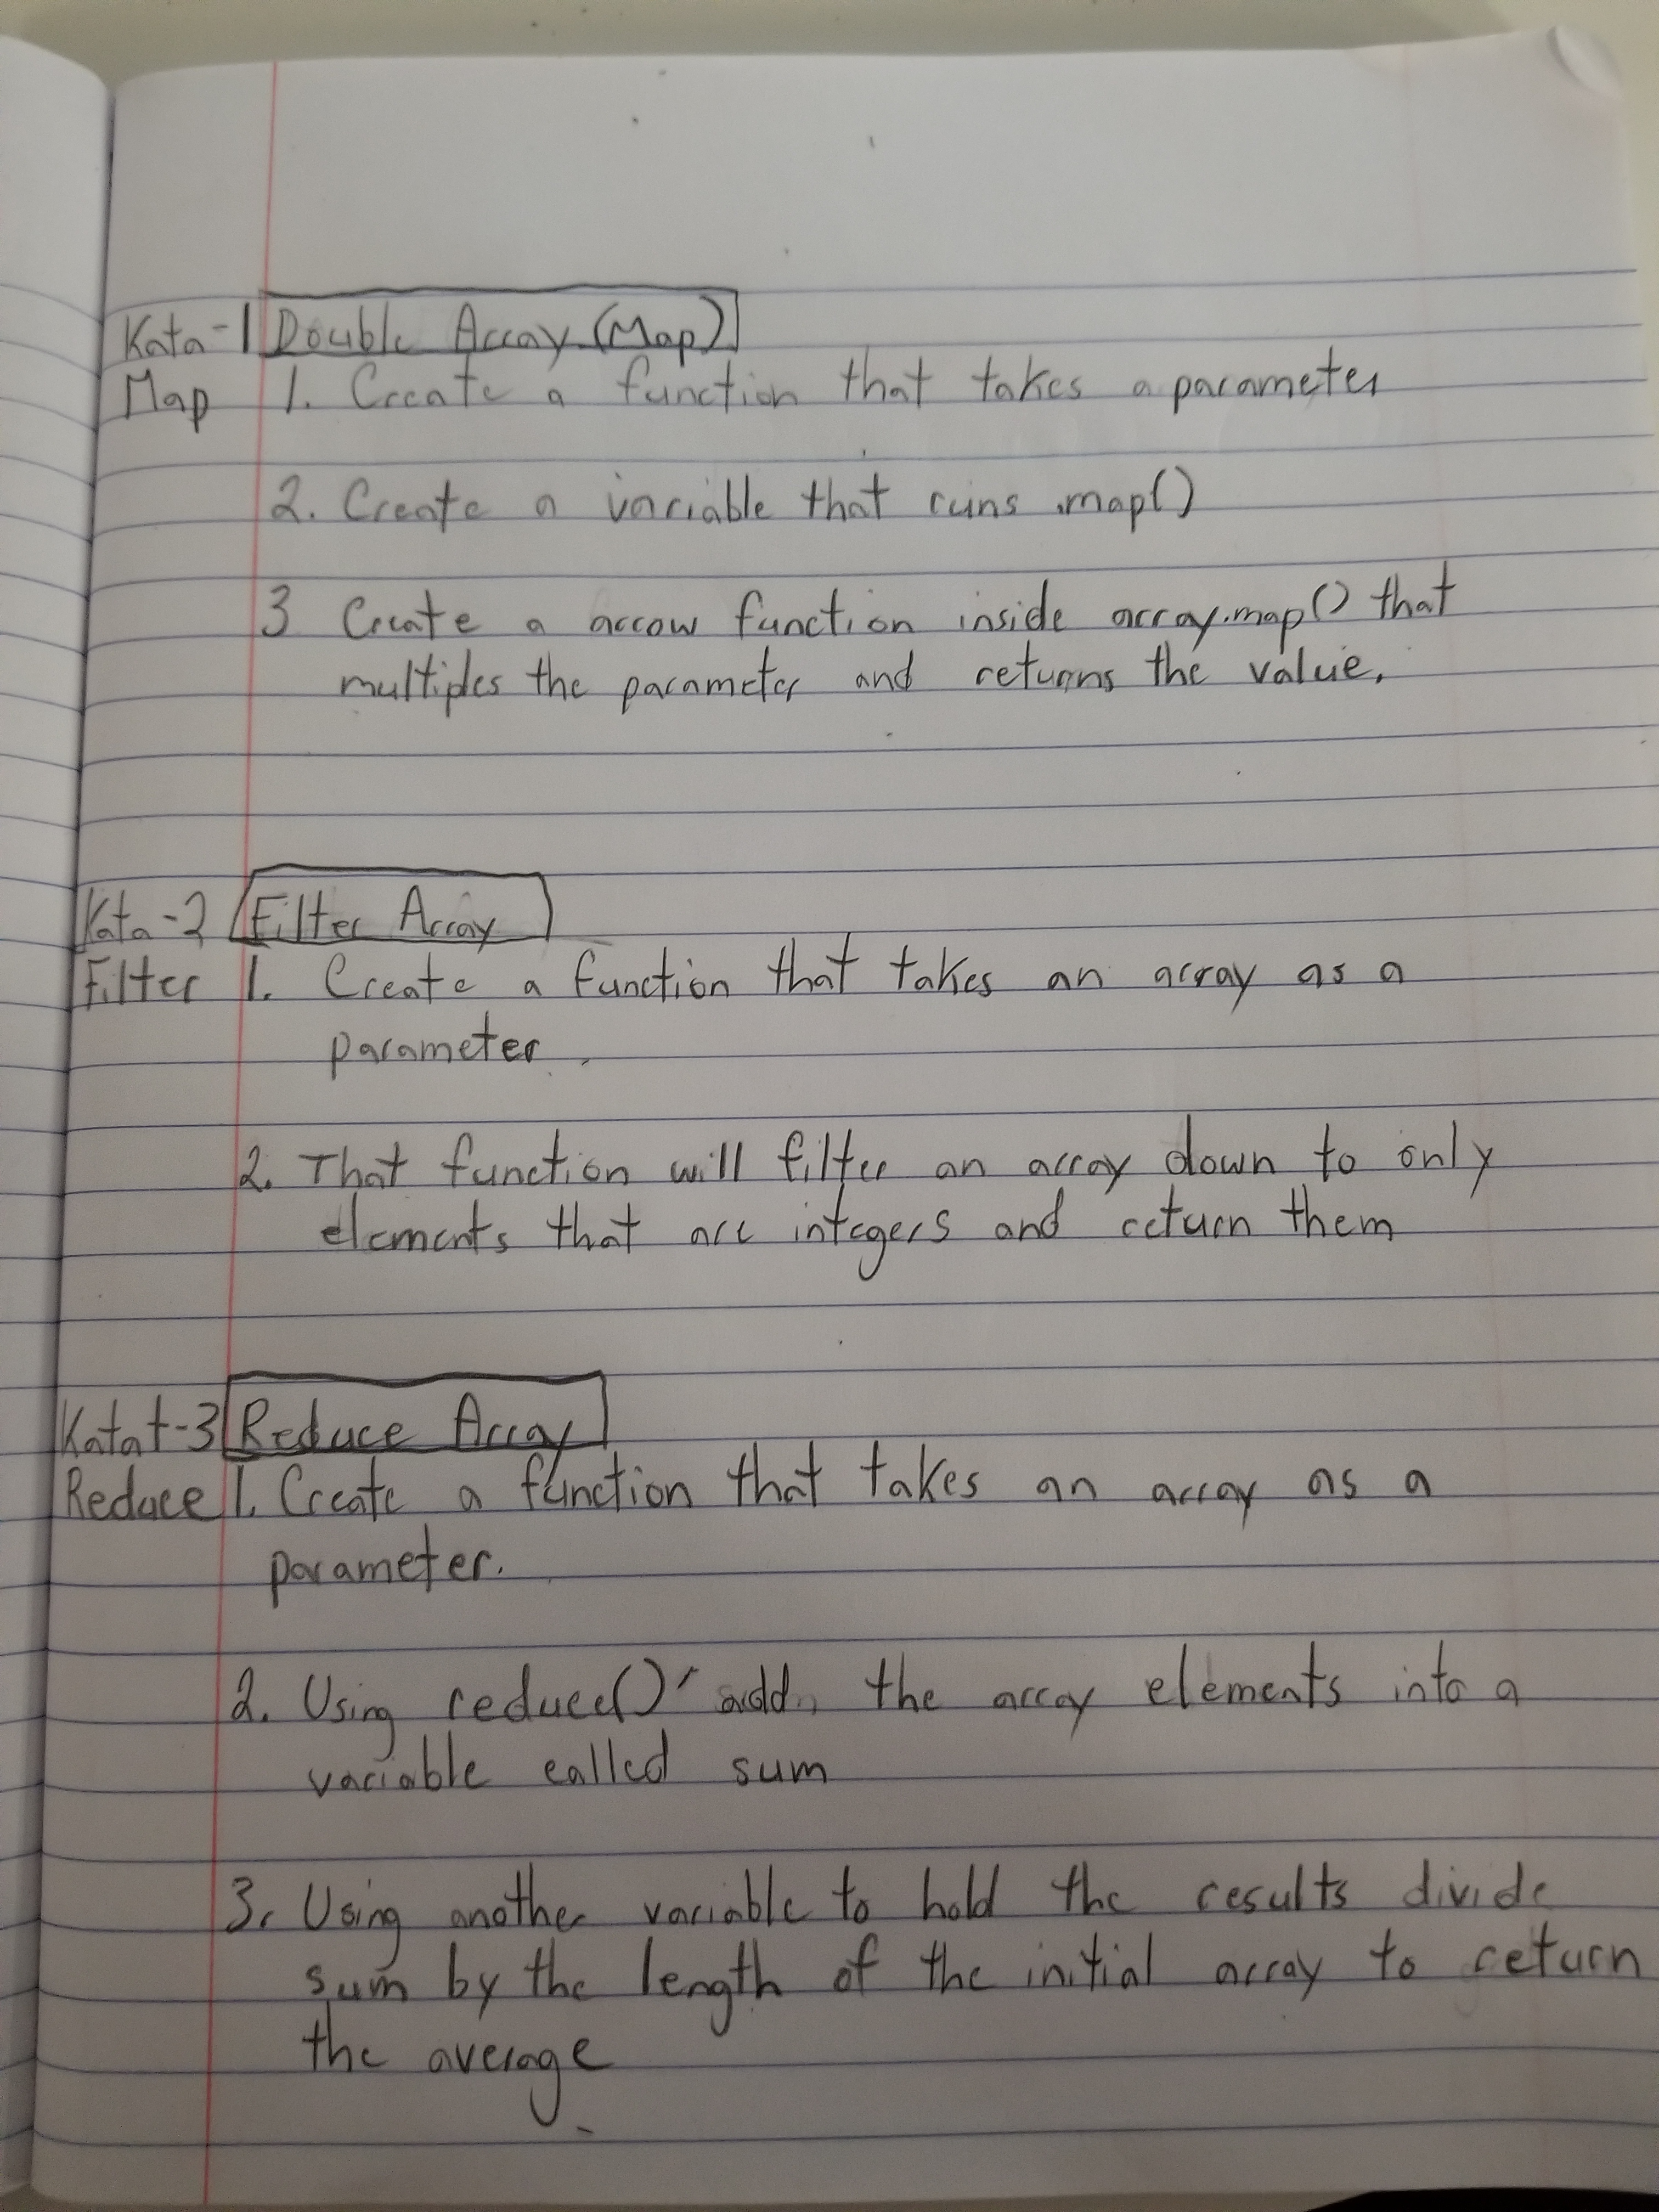 Kata-1 Double Array (Map)
Map 1. Create a function that takes a parameter
2. Create a variable that runs .map()
3 Create a arrow function inside array.map() that
multiples the parameter and returns the value.
Kata-2 Filter Array
Filter 1. Create a function that takes an array as a
parameter.
2. That function will filter an array down to only
elements that are integers and return them
Katat-3 Reduce Array
Reduce 1. Create a function that takes an array as a
parameter.
2. Using reduce() add the array elements into a
variable called sum
3. Using another variable to hold the results divide
sum by the length of the initial array to return
the average